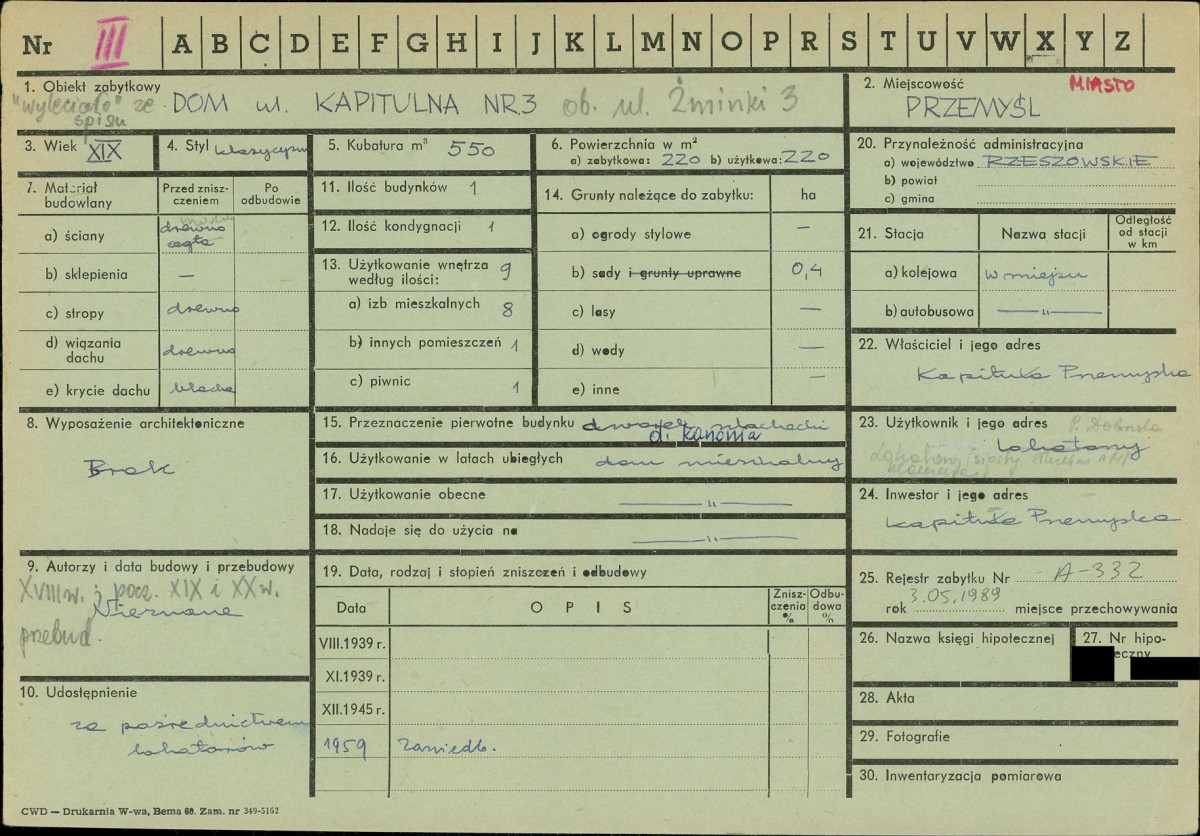 Nr III A B C D E F G H I J K L M N O P R S T U V W X Y Z
1. Obiekt zabytkowy
"wyleciało" ze spisu
DOM ul. KAPITULNA NR 3 ob. ul. Żminki 3
2. Miejscowość MIASTO
PRZEMYŚL
3. Wiek XIX
4. Styl klasycyzm
5. Kubatura m³ 550
6. Powierzchnia w m²
a) zabytkowa: 220 b) użytkowa: 220
7. Materiał budowlany
Przed zniszczeniem
Po odbudowie
a) ściany drewno cegła
b) sklepienia —
c) stropy drewno
d) wiązania dachu drewno
e) krycie dachu blacha
8. Wyposażenie architektoniczne
Brak
9. Autorzy i data budowy i przebudowy
XVIII w. ; pocz. XIX i XX w.
Nieznane
przebud.
10. Udostępnienie
za pośrednictwem
lokatorów
11. Ilość budynków 1
12. Ilość kondygnacji 1
13. Użytkowanie wnętrza według ilości: 9
a) izb mieszkalnych 8
b) innych pomieszczeń 1
c) piwnic 1
14. Grunty należące do zabytku: ha
a) ogrody stylowe —
b) sady i grunty uprawne 0,4
c) lasy —
d) wody —
e) inne —
15. Przeznaczenie pierwotne budynku dworek szlachecki
d. kanonia
16. Użytkowanie w latach ubiegłych dom mieszkalny
17. Użytkowanie obecne — " —
18. Nadaje się do użycia na — " —
19. Data, rodzaj i stopień zniszczeń i odbudowy
Data OPIS Zniszczenia % Odbudowa %
VIII.1939 r.
XI.1939 r.
XII.1945 r.
1959 Zaniedb.
20. Przynależność administracyjna
a) województwo RZESZOWSKIE
b) powiat
c) gmina
21. Stacja Nazwa stacji Odległość od stacji w km
a) kolejowa w miejscu
b) autobusowa — " —
22. Właściciel i jego adres
Kapituła Przemyska
23. Użytkownik i jego adres
Lokatorzy
24. Inwestor i jego adres
Kapituła Przemyska
25. Rejestr zabytku Nr A-332
rok 3.05.1989 miejsce przechowywania
26. Nazwa księgi hipotecznej
27. Nr hipo-
eczny
28. Akta
29. Fotografie
30. Inwentaryzacja pomiarowa
CWD — Drukarnia W-wa, Bema 60. Zam. nr 349-5162